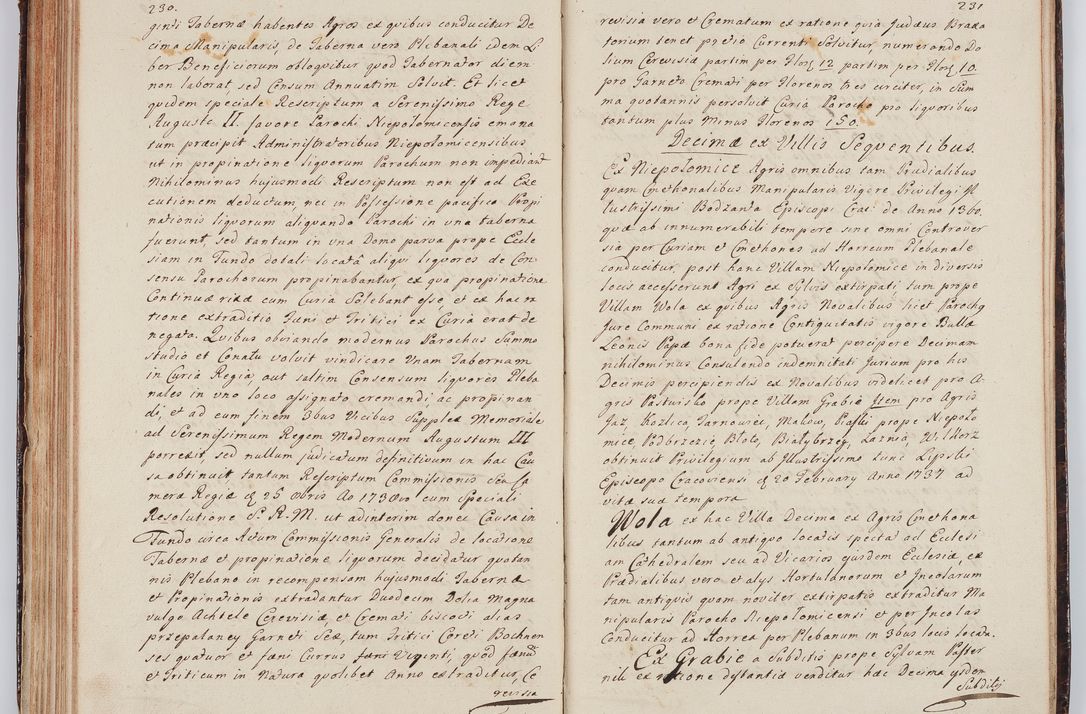 230.
ginti Tabernæ habentes Agros ex quibus conducitur De
cima Manipularis, de Taberna vero Plebanali idem Li
ber Beneficiorum obloquitur quod Tabernator diem
non laborat, sed Censum Annuatim Solvit. Et licet
quidem speciale Rescriptum a Serenissimo Rege
Auguste II. favore Parochi Niepolomicensis emana
tum præcipit Administratoribus Niepolomicensibus
ut in propinatione liquorum Parochum non impediant
Nihilominus hujusmodi Rescriptum non est ad Exe
cutionem deductum nec in Possessione pacifica Propi
nationis liquorum aliquando Parochi in una taberna
fuerunt, sed tantum in una Domo parva prope Eccle
siam in Fundo dotali locatâ aliqui liquores de Con
sensu Parochorum propinabantur, ex qua propinatione
Continuæ rixæ cum Curia Solebant esse, et ex hac ra
tione extraditio fæni et Tritici ex Curia erat de
negata. Quibus obviando modernus Parochus Summo
studio et Conatu voluit vindicare Unam Tabernam
in Curia Regia, aut saltim Consensum liquores Pleba
nales in uno loco assignato cremandi, ac propinan
di, et ad eum finem 3bus Vicibus Supplex Memoriale
ad Serenissimum Regem Modernum Augustum III
porrexit, sed nullum judicatum definitivum in hac Cau
sa obtinuit tantum Rescriptum Commissionis seu Ca
meræ Regiæ d 25 Obris Ao 1730 cum Speciali
Resolutione S. R. M. ut adinterim donec Causa in
Fundo circa Actum Commissionis Generalis de locatione
Tabernæ et propinatione liquorum decidatur quotan
nis Plebano in recompensam hujusmodi Tabernæ
et Propinationis extradantur Duodecim Dolia Magna
vulgo Achtele Cerevisiæ, et Cremati biscocti alias
przepalaney Garnci Sex, tum Tritici Coreti Bochnen
ses quatuor et fæni Currus fæni Viginti, quod fænum
et Triticum in Natura quolibet Anno extraditur, Ce
revisia
231
revisia vero et Crematum ex ratione quia Judæus Braxa
torium tenet pretio Currenti Solvitur, numerando Do
lium Cerevisiæ partim per Flor. 12 partim per Flor. 10.
pro Garneto Cremati per Florenos tres circiter, in Sum
ma quotannis persolvit Curia Parocho pro liquoribus
tantum plus Minus Florenos 150.
Decimæ ex Villis Sequentibus.
Ex Niepołomice Agris omnibus tam Prædialibus
quam Cmethonalibus Manipularis Vigore Privilegi Il
lustrissimi Bodzanta Episcopi Crac. de Anno 1360.
quæ ab innumerabili tempore sine omni Controver
sia per Curiam et Cmethones ad Horreum Plebanale
conducitur, post hanc Villam Niepołomice in diversis
locis accesserunt Agri ex Sylvis extirpati, tum prope
Villam Wola ex quibus Agris Novalibus licet Parochg
Jure Communi ex ratione Contiguitatis vigore Bullæ
Leonis Papæ bona fide potuerat percipere Decimam
nihilominus Consulendo indemnitati Jurium pro his
Decimis percipiendis ex Novalibus videlicet pro A
gris Pastwisko prope Villam Grabie Item pro Agris
Jaz, Kozlica Tarnowiec, Makow, Piaski prope Niepoło
mice, Podbrzezie Błoto, Białybrzeg, Łaznia, Wilkorz
obtinuit Privilegium ab Illustrissimo tunc Lipski
Episcopo Cracoviensi d 20 February Anno 1737 ad
vitæ suæ tempora
Wola ex hac Villa Decima ex Agris Cmethona
libus tantum ab antiquo locatis spectat ad Ecclesi
am Cathedralem seu ad Vicarios ejusdem Ecclesiæ, ex
Prædialibus vero et alys Hortulanorum et Incolarum
tam antiquis quam noviter extirpatis extraditur Ma
nipularis Parocho Niepołomicensi et per Incolas
Conducitur ad Horrea per Plebanum in 3bus locis locata.
Ex Grabie a Subditis prope Sylvam Paster
nik ex ratione distantiæ venditur hæc Decima ysdem
Subditis